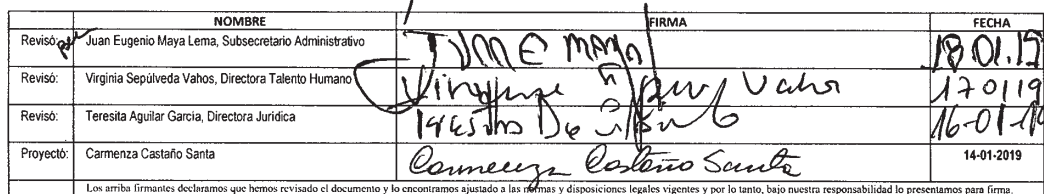 NOMBRE FIRMA FECHA
Revisó: Juan Eugenio Maya Lema, Subsecretario Administrativo 18.01.19
Revisó: Virginia Sepúlveda Vahos, Directora Talento Humano Vahos 170119
Revisó: Teresita Aguilar García, Directora Jurídica 16-01-19
Proyectó: Carmenza Castaño Santa Carmenza Castaño Santa 14-01-2019
Los arriba firmantes declaramos que hemos revisado el documento y lo encontramos ajustado a las normas y disposiciones legales vigentes y por lo tanto, bajo nuestra responsabilidad lo presentamos para firma.